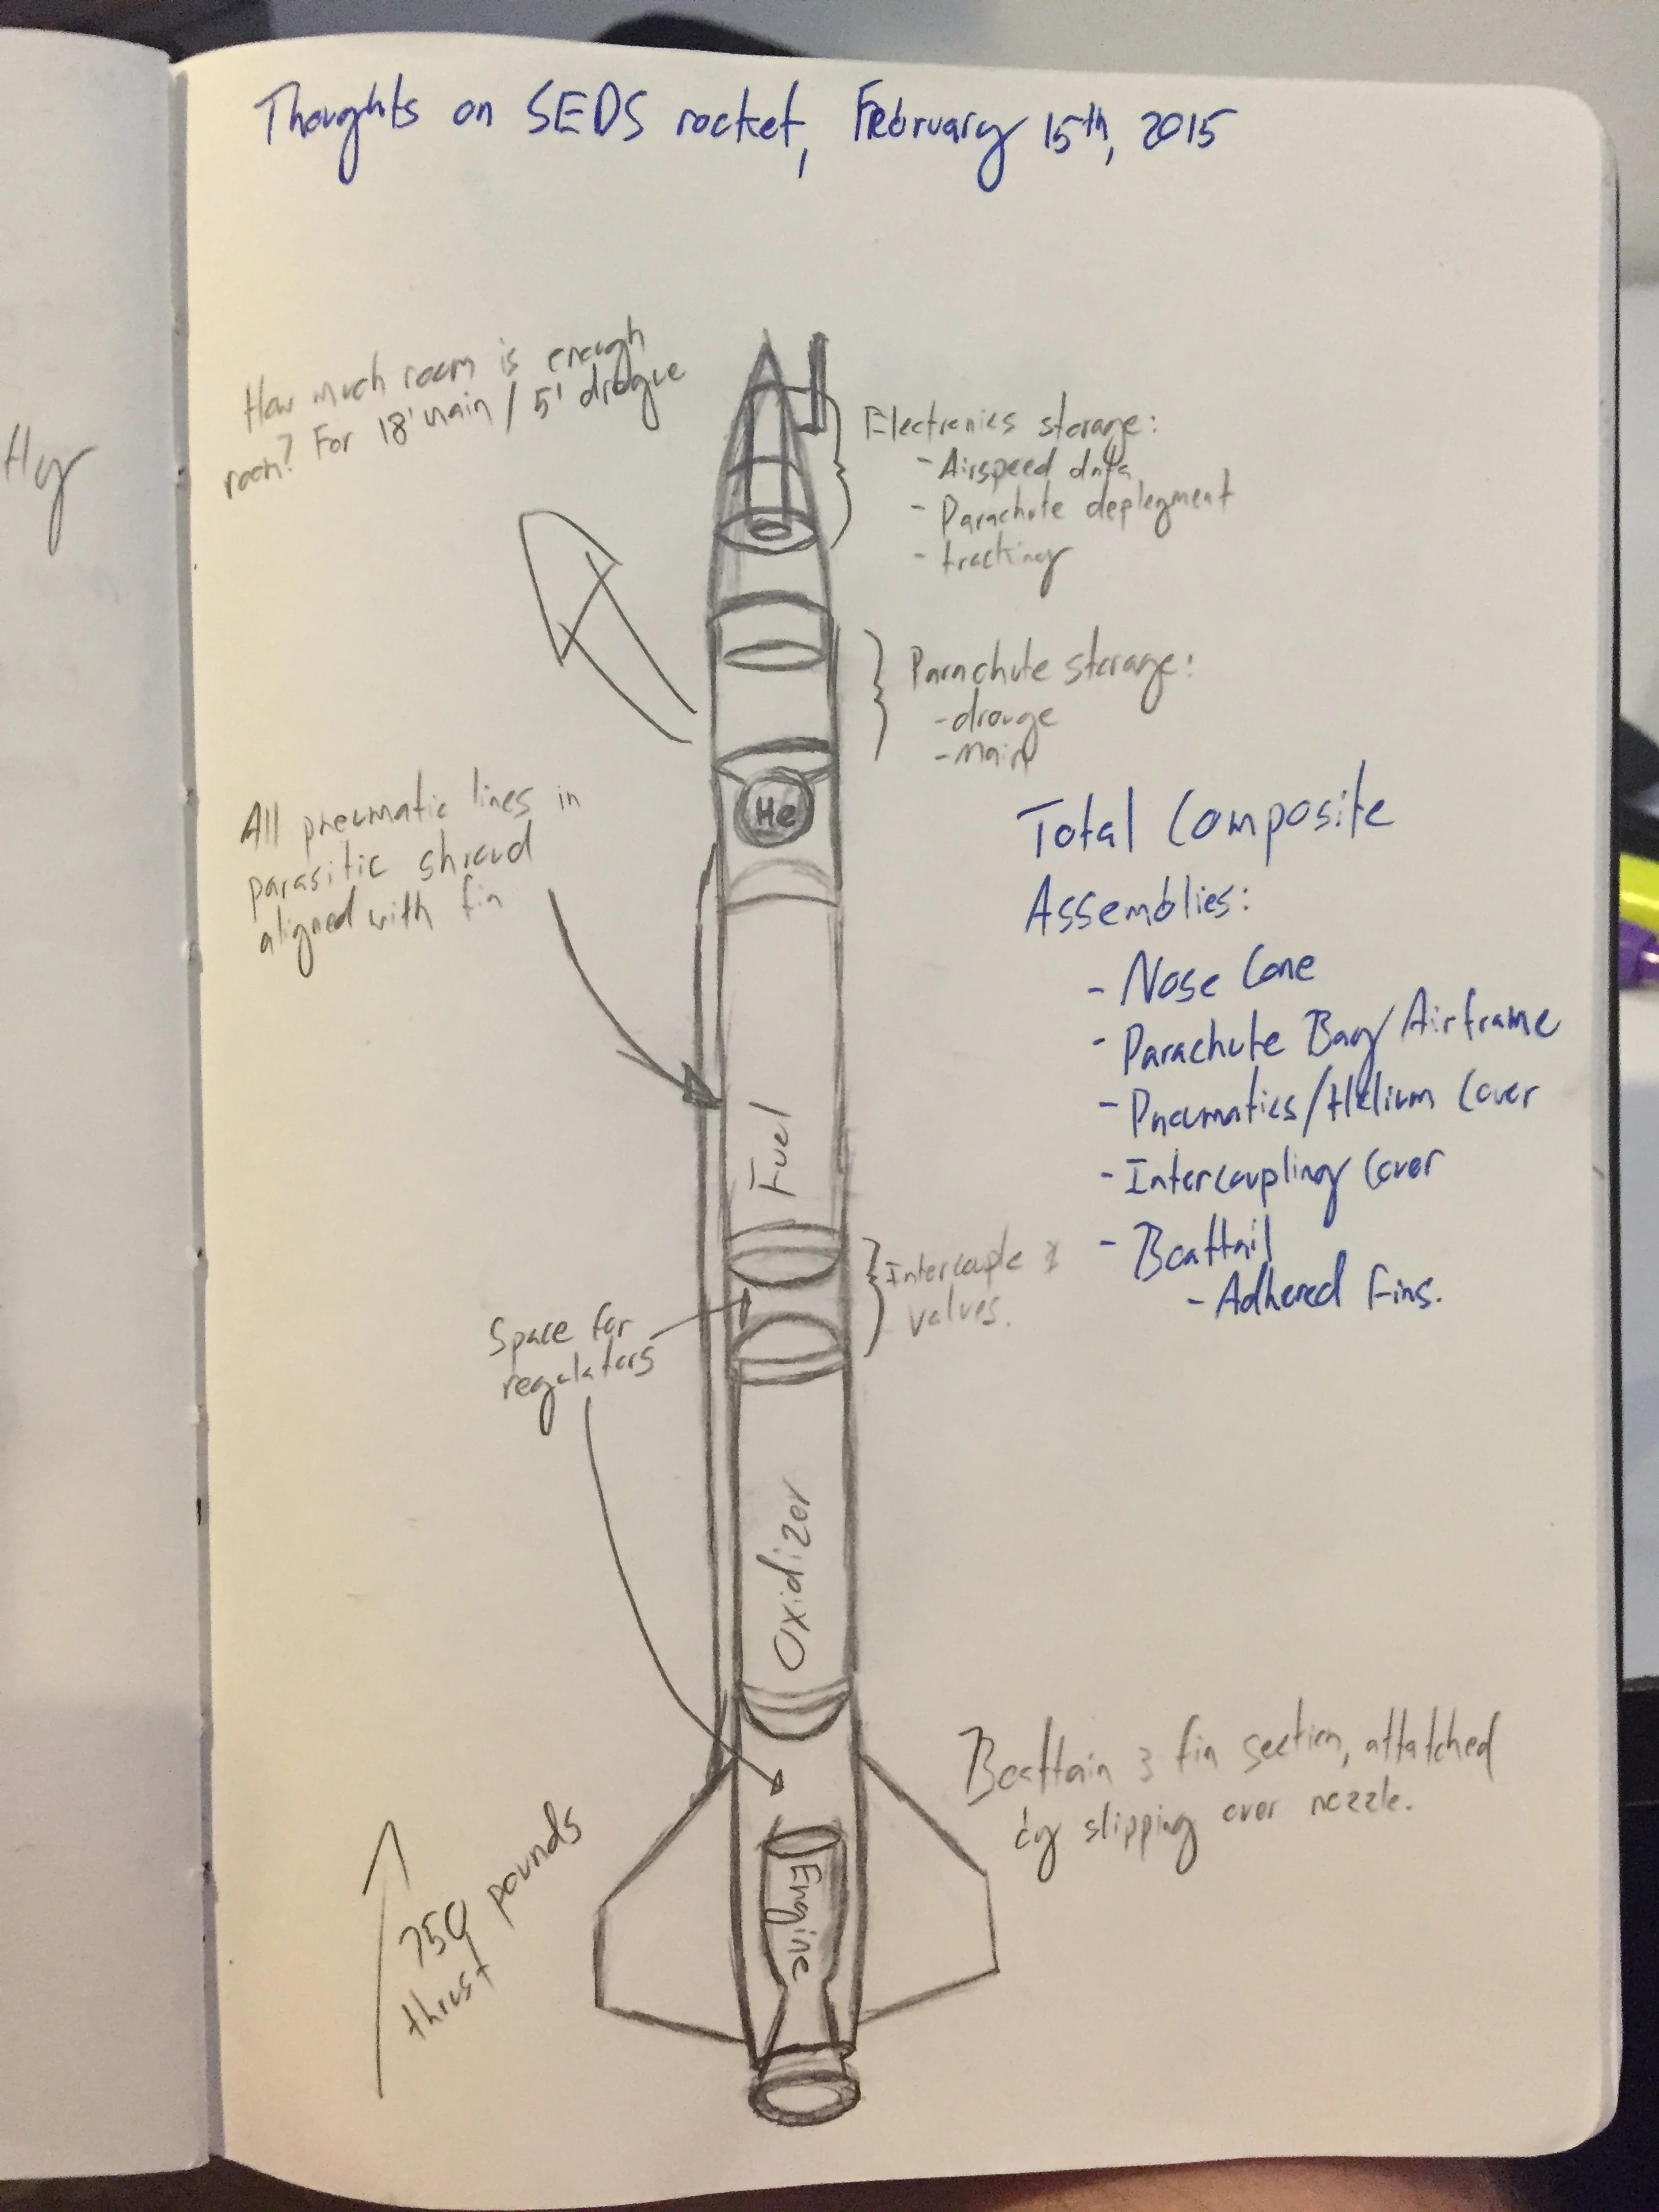 Thoughts on SEDS rocket, February 15th, 2015
How much room is enough
room? For 18' main / 5' drogue
Electronics storage:
- Airspeed data
- Parachute deployment
- tracking
Parachute storage:
- drouge
- Main
He
All pneumatic lines in
parasitic shroud
aligned with fin
Total Composite
Assemblies:
- Nose Cone
- Parachute Bay/Airframe
- Pneumatics/Helium Cover
- Intercoupling Cover
- Boattail
- Adhered Fins.
Fuel
Intercouple &
valves.
Space for
regulators
Oxidizer
Boattain & fin section, attatched
by slipping over nozzle.
Engine
750 pounds
thrust